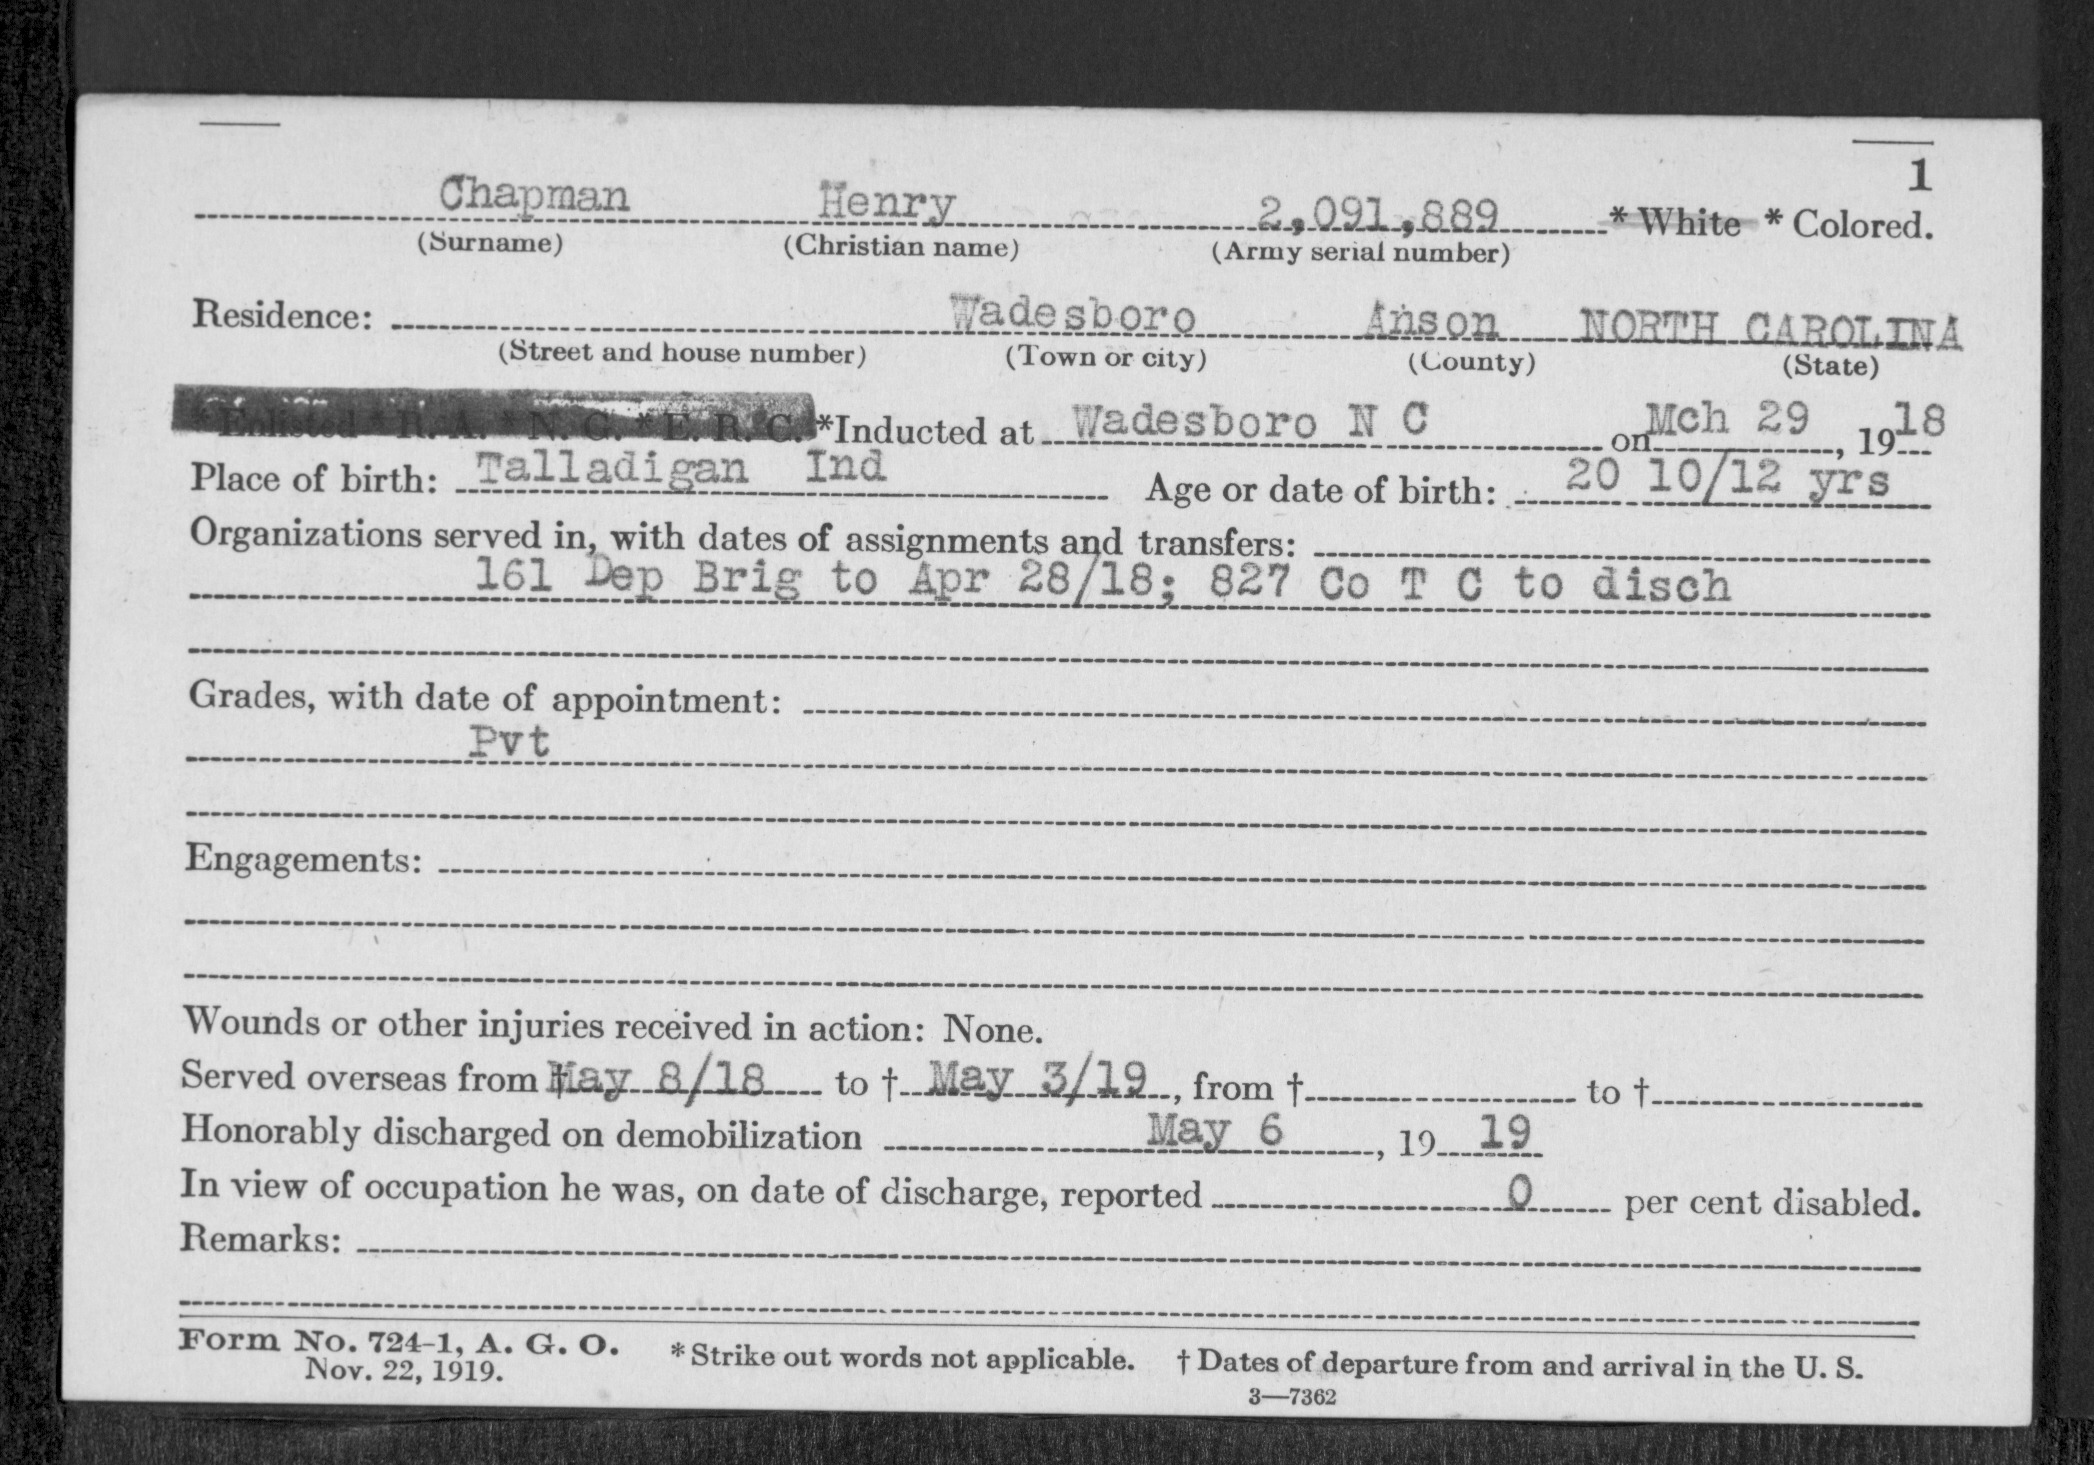 1
Chapman Henry 2,091,889 * White * Colored.
(Surname) (Christian name) (Army serial number)
Residence: Wadesboro Anson NORTH CAROLINA
(Street and house number) (Town or city) (County) (State)
* Enlisted * R. A. * N. G. * E. R. C. *Inducted at Wadesboro N C on Mch 29, 1918
Place of birth: Talladigan Ind Age or date of birth: 20 10/12 yrs
Organizations served in, with dates of assignments and transfers:
161 Dep Brig to Apr 28/18; 827 Co T C to disch
Grades, with date of appointment:
Pvt
Engagements:
Wounds or other injuries received in action: None.
Served overseas from † May 8/18 to † May 3/19, from † to †
Honorably discharged on demobilization May 6, 19 19
In view of occupation he was, on date of discharge, reported 0 per cent disabled.
Remarks:
Form No. 724-1, A. G. O. * Strike out words not applicable. † Dates of departure from and arrival in the U. S.
Nov. 22, 1919.
3—7362